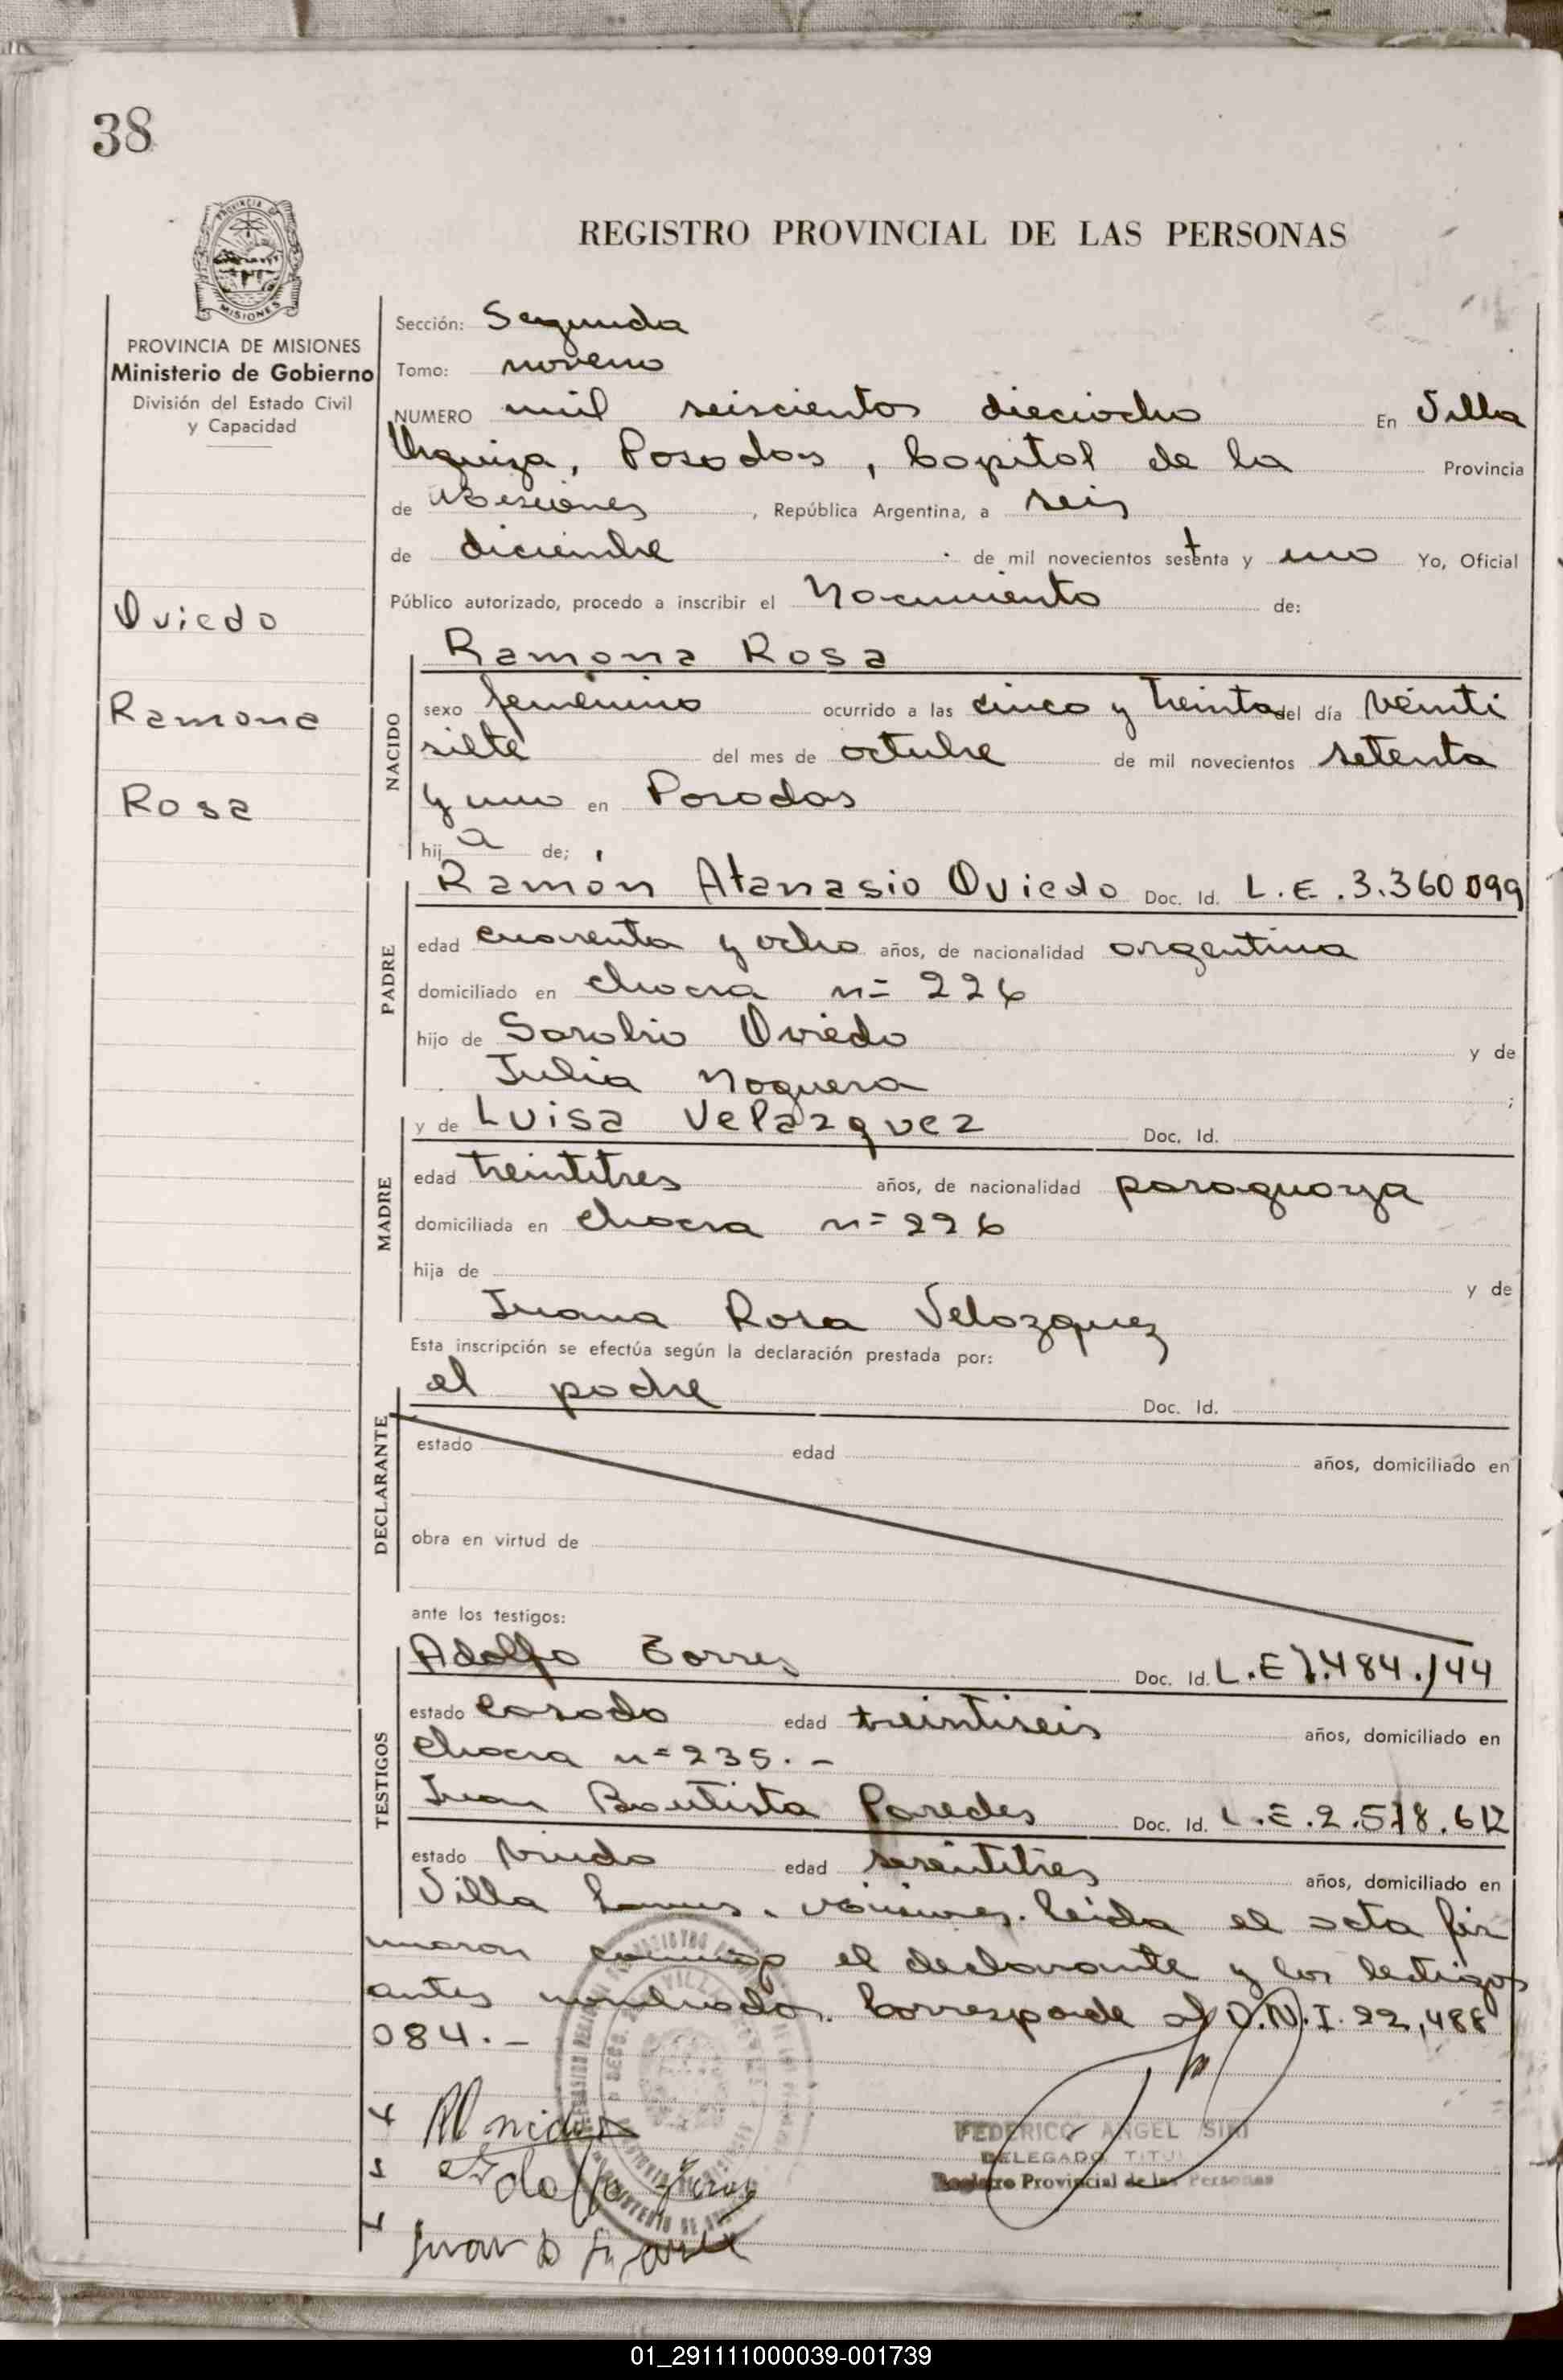 38
PROVINCIA DE
MISIONES
REGISTRO PROVINCIAL DE LAS PERSONAS
PROVINCIA DE MISIONES
Ministerio de Gobierno
División del Estado Civil
y Capacidad
Oviedo
Ramona
Rosa
Sección: Segunda
Tomo: noveno
NUMERO mil seiscientos dieciocho En Villa
Urquiza, Posadas, Capital de la Provincia
de Misiones, República Argentina, a seis
de diciembre de mil novecientos setenta y uno Yo, Oficial
Público autorizado, procedo a inscribir el Nacimiento de:
NACIDO
Ramona Rosa
sexo femenino ocurrido a las cinco y treinta del día veinti
siete del mes de octubre de mil novecientos setenta
y uno en Posadas
hija de;
PADRE
Ramón Atanasio Oviedo Doc. Id. L.E.3.360.099
edad cuarenta y ocho años, de nacionalidad argentina
domiciliado en chacra n= 226
hijo de Oviedo y de
Julia Noguera ;
MADRE
y de Luisa Velazquez Doc. Id.
edad treintitres años, de nacionalidad paraguaya
domiciliada en chacra n= 226
hija de y de
Juana Rosa Velazquez
Esta inscripción se efectúa según la declaración prestada por:
DECLARANTE
el padre Doc. Id.
estado edad años, domiciliado en
obra en virtud de
ante los testigos:
TESTIGOS
Adolfo Torres Doc. Id. L.E 7.484.144
estado casado edad treintiseis años, domiciliado en
chacra n= 235.-
Juan Bautista Paredes Doc. Id. L.E.2.578.612
estado viudo edad años, domiciliado en
Villa Lanus, Misiones. Leida el acta fir
maron conmigo el declarante y los testigos
antes nombrados. Corresponde al D.N.I. 22,488
084.-
FEDERICO ANGEL SIRI
DELEGADO TITU
Registro Provincial de las Personas
01_291111000039-001739